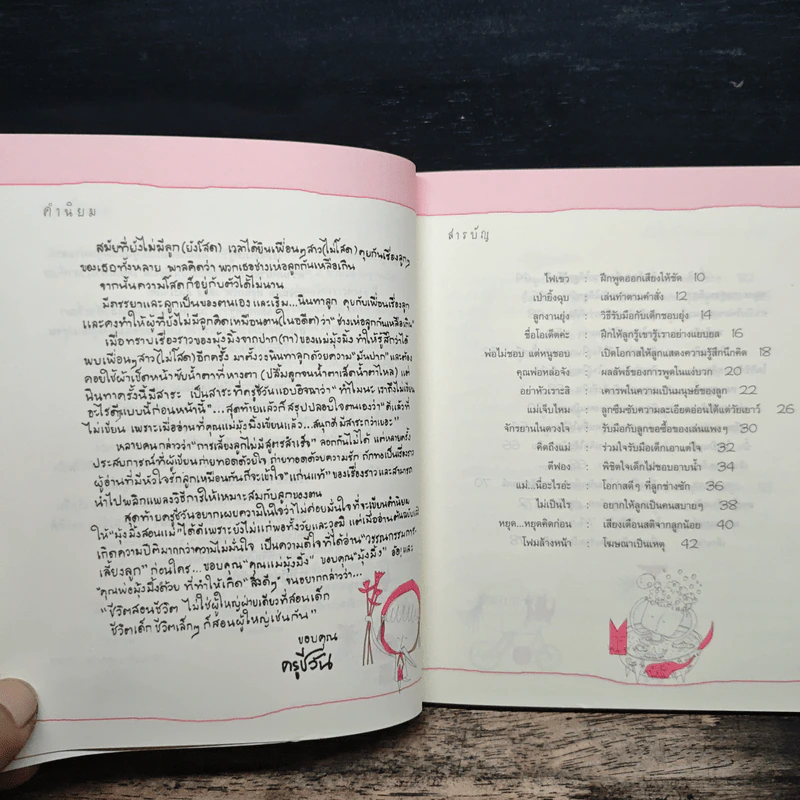 คำนิยม
สมัยที่ยังไม่มีลูก(ยังโสด) เวลาได้ยินเพื่อนๆสาว(ไม่โสด)คุยกันเรื่องลูกๆ
ของเธอทั้งหลาย พาลคิดว่า พวกเธอช่างเห่อลูกกันเหลือเกิน
จากนั้นความโสดก็อยู่กับตัวได้ไม่นาน
มีภรรยาและลูกเป็นของตนเอง และเริ่ม...นินทาลูก คุยกับเพื่อนเรื่องลูก
และคงทำให้ผู้ที่ยังไม่มีลูกคิดเหมือนตน(ในอดีต)ว่า "ช่างเห่อลูกกันเหลือเกิน"
เมื่อทราบเรื่องราวของมุ้งมิ้งจากปาก(กา)ของแม่มุ้งมิ้ง ทำให้รู้สึกว่าได้
พบเพื่อนๆสาว(ไม่โสด)อีกครั้ง มาตั้งวงนินทาลูกด้วยความ"มันปาก"และต้อง
คอยใช้ผ้าเช็ดหน้าซับน้ำตาที่หางตา (ปลื้มลูกจนน้ำตาเล็ดน้ำตาไหล) แต่
นินทาครั้งนี้มีสาระ เป็นสาระที่ครูชีวันแอบอิจฉาว่า "ทำไมนะ เราถึงไม่เขียน
อะไรดีๆแบบนี้ก่อนหน้านี้"...สุดท้ายแล้วก็สรุปปลอบใจตนเองว่า"ดีแล้วที่
ไม่เขียน เพราะเมื่ออ่านที่คุณแม่มุ้งมิ้งเขียนแล้ว...สนุกดีมีสาระกว่าเยอะ"
หลายคนกล่าวว่า"การเลี้ยงลูกไม่มีสูตรสำเร็จ" ลอกกันไม่ได้ แต่หลายครั้ง
ประสบการณ์ที่ผู้เขียนถ่ายทอดด้วยใจ ถ่ายทอดด้วยความรัก ก็ทำให้
ผู้อ่านที่มีหัวใจรักลูกเหมือนกันก็จะเข้าใจ"แก่นแท้"ของเรื่องราวและสามารถ
นำไปพลิกแพลงวิธีการให้เหมาะสมกับลูกของตน
สุดท้ายครูชีวันอยากเผยความในใจว่าไม่ค่อยมั่นใจที่จะเขียนคำนิยม
ให้"มุ้งมิ้งสอนแม่"ได้ดีเพราะยังไม่แก่พอทั้งวัยและวุฒิ แต่เมื่ออ่านต้นฉบับแล้ว
เกิดความปิติมากกว่าความไม่มั่นใจ เป็นความดีใจที่ได้อ่าน"วรรณกรรมการ-
เลี้ยงลูก"ก่อนใคร...ขอบคุณ"คุณแม่มุ้งมิ้ง" ขอบคุณ"มุ้งมิ้ง" และ
"คุณพ่อมุ้งมิ้งด้วย ที่ทำให้เกิด"สิ่งดีๆ" จนอยากกล่าวว่า...
"ชีวิตสอนชีวิต ไม่ใช่ผู้ใหญ่ฝ่ายเดียวที่สอนเด็ก
ชีวิตเด็ก ชีวิตเล็กๆ ก็สอนผู้ใหญ่เช่นกัน"
ขอบคุณ
ครูชีวัน
สารบัญ
ไฟเขว : ฝึกพูดออกเสียงให้ชัด 10
เป่ายิ้งฉุบ : เล่นทำตามคำสั่ง 12
ลูกงานยุ่ง : วิธีรับมือกับเด็กชอบยุ่ง 14
ชื่อโอเด็ดค่ะ : ฝึกให้ลูกรู้เขารู้เราอย่างแยบยล 16
พ่อไม่ชอบ แต่หนูชอบ : เปิดโอกาสให้ลูกแสดงความรู้สึกนึกคิด 18
คุณพ่อหล่อจัง : ผลลัพธ์ของการพูดในแง่บวก 20
อย่าหัวเราะสิ : เคารพในความเป็นมนุษย์ของลูก 22
แม่เจ็บไหม : ลูกซึมซับความละเอียดอ่อนได้แต่วัยเยาว์ 26
จักรยานในดวงใจ : รับมือกับลูกขอซื้อของเล่นแพงๆ 30
คิดถึงแม่ : ร่วมใจรับมือเด็กเอาแต่ใจ 32
ตีฟอง : พิชิตใจเด็กไม่ชอบอาบน้ำ 34
แม่...นี่อะไรอ่ะ : โอกาสดีๆ ที่ลูกช่างซัก 36
ไม่เป็นไร : อยากให้ลูกเป็นคนสบายๆ 38
หยุด...หยุดคิดก่อน : เสียงเตือนสติจากลูกน้อย 40
โฟมล้างหน้า : โฆษณาเป็นเหตุ 42